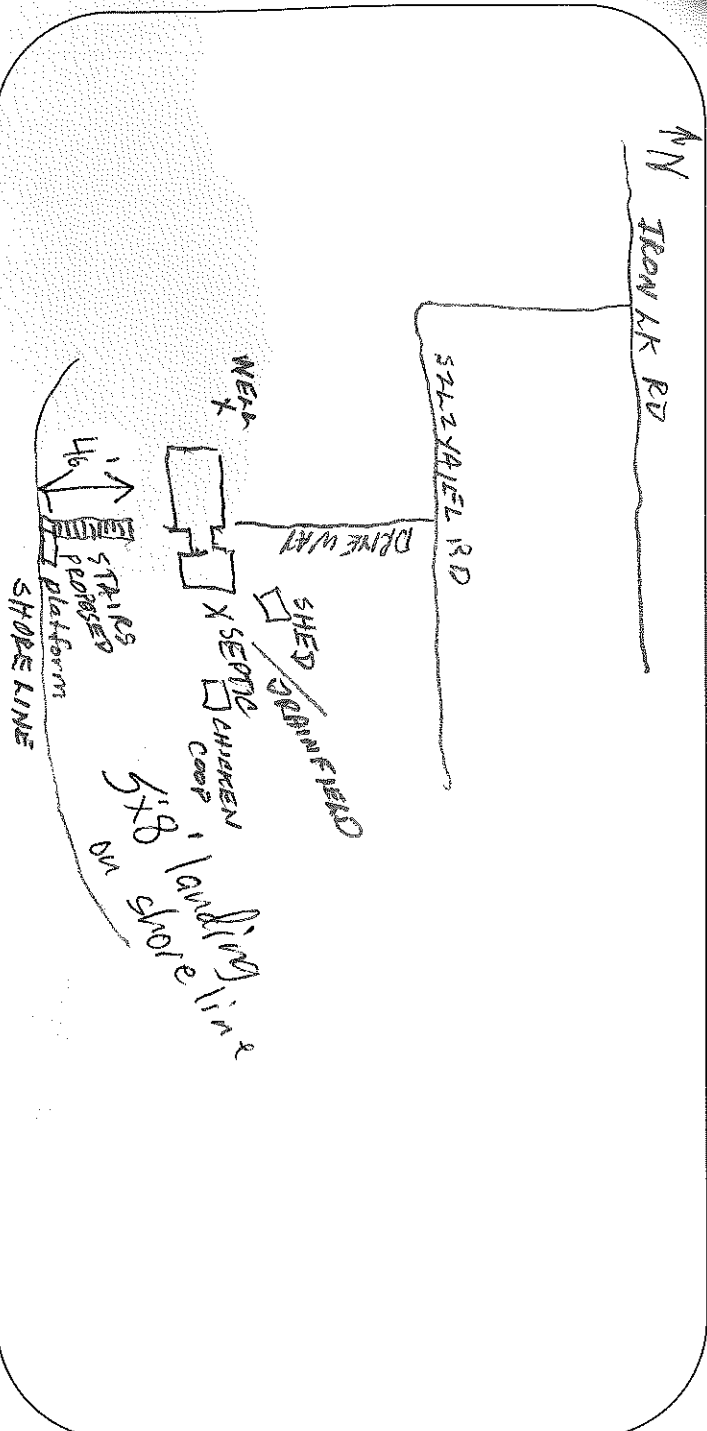 N IRON LK RD
RD
DRIVEWAY
SHED
DRAINFIELD
WELL
X
X SEPTIC
CHICKEN
COOP
46'
STAIRS
PROPOSED
platform
SHORELINE
5'x8' landing
on shoreline